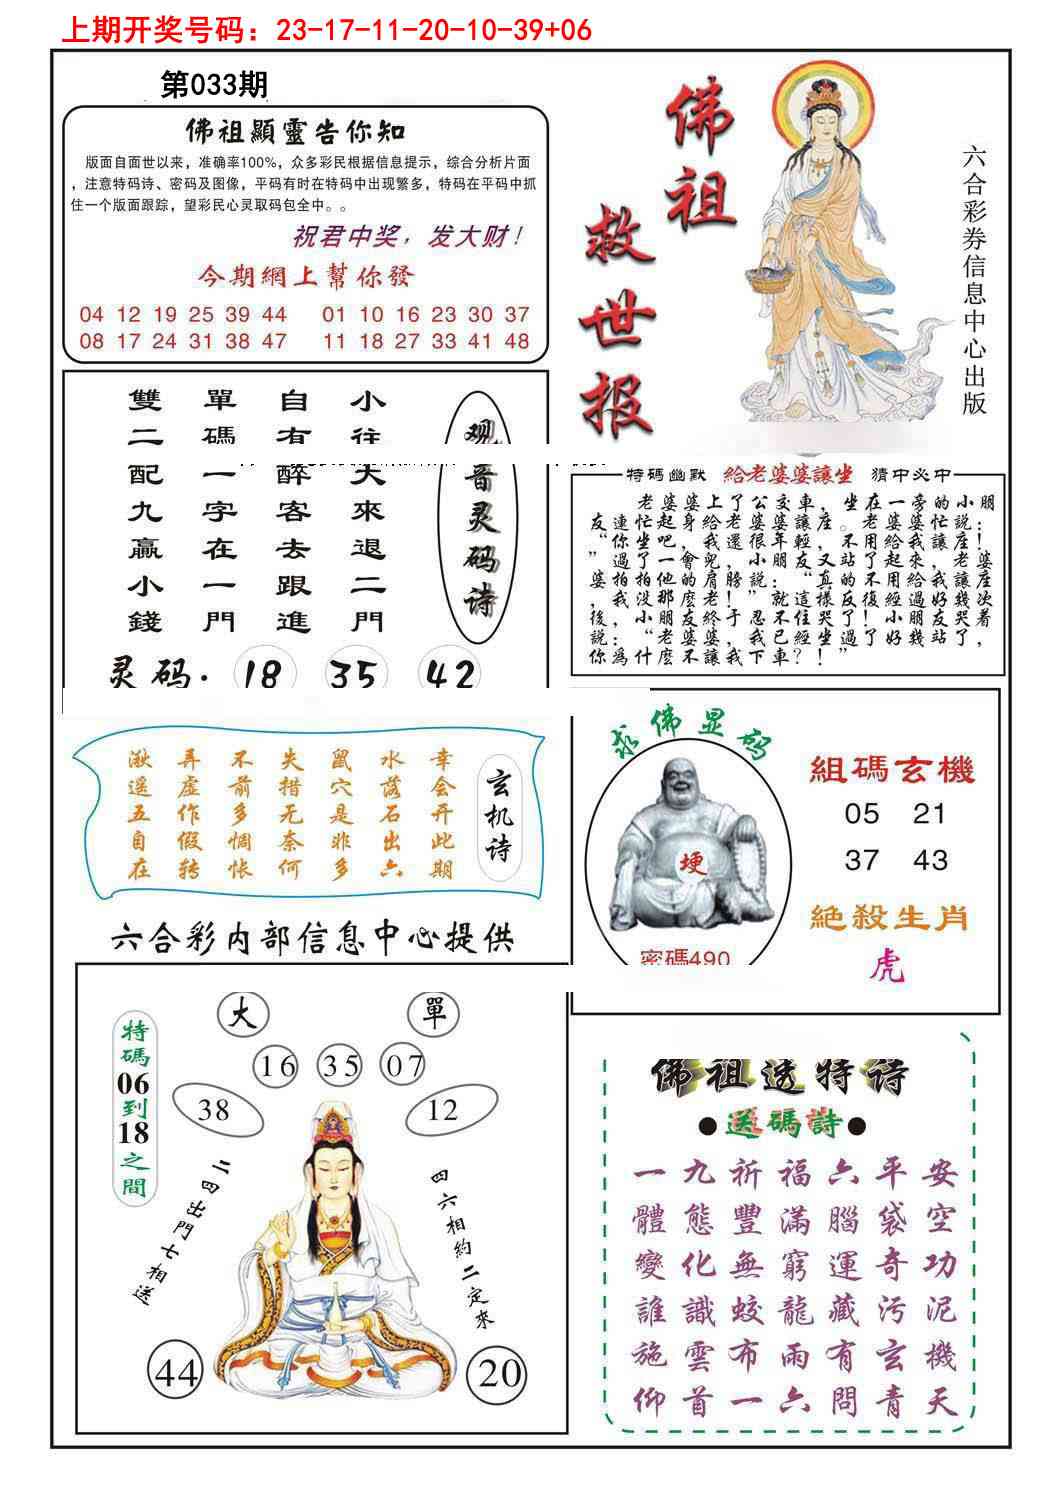 上期开奖号码：23-17-11-20-10-39+06
第033期
佛祖顯靈告你知
版面自面世以来，准确率100%，众多彩民根据信息提示，综合分析片面
，注意特码诗、密码及图像，平码有时在特码中出现繁多，特码在平码中抓
住一个版面跟踪，望彩民心灵取码包全中。。
祝君中奖，发大财！
今期網上幫你發
04 12 19 25 39 44 01 10 16 23 30 37
08 17 24 31 38 47 11 18 27 33 41 48
佛祖
救世报
六合彩券信息中心出版
观音灵码诗
小往大來退二門
自有醉客去跟進
單碼一字在一門
雙二配九贏小錢
灵码. 18 35 42
特碼幽默 給老婆婆讓坐 猜中必中
老婆婆上了公交車，坐在一旁的小朋
友連忙起身給老婆婆讓座。老婆婆忙説：
“你坐吧，我還很年輕，不用給我讓座！
”過了一會兒，小朋友又站了起來，老婆
婆拍拍他的肩膀説：“真的不用給我讓座
，我没那麽老！”就這樣反復經過好幾次
後，小朋友終于忍不住哭了！小朋友哭着
説：“老婆婆，我已經坐過了好幾站了，
你爲什麽不讓我下車？！”
玄机诗
幸会开此期
水落石出六
鼠穴是非多
失措无奈何
不前多惆怅
弄虚作假转
潊遥五自在
求佛显码
埂
密碼490
組碼玄機
05 21
37 43
絶殺生肖
虎
六合彩内部信息中心提供
特碼06到18之間
大 單
16 35 07
38 12
二四出門七相送
四六相約二定來
44 20
佛祖透特诗
●送碼詩●
一九祈福六平安
體態豐滿腦袋空
變化無窮運奇功
誰識蛟龍藏污泥
施雲布雨有玄機
仰首一六問青天